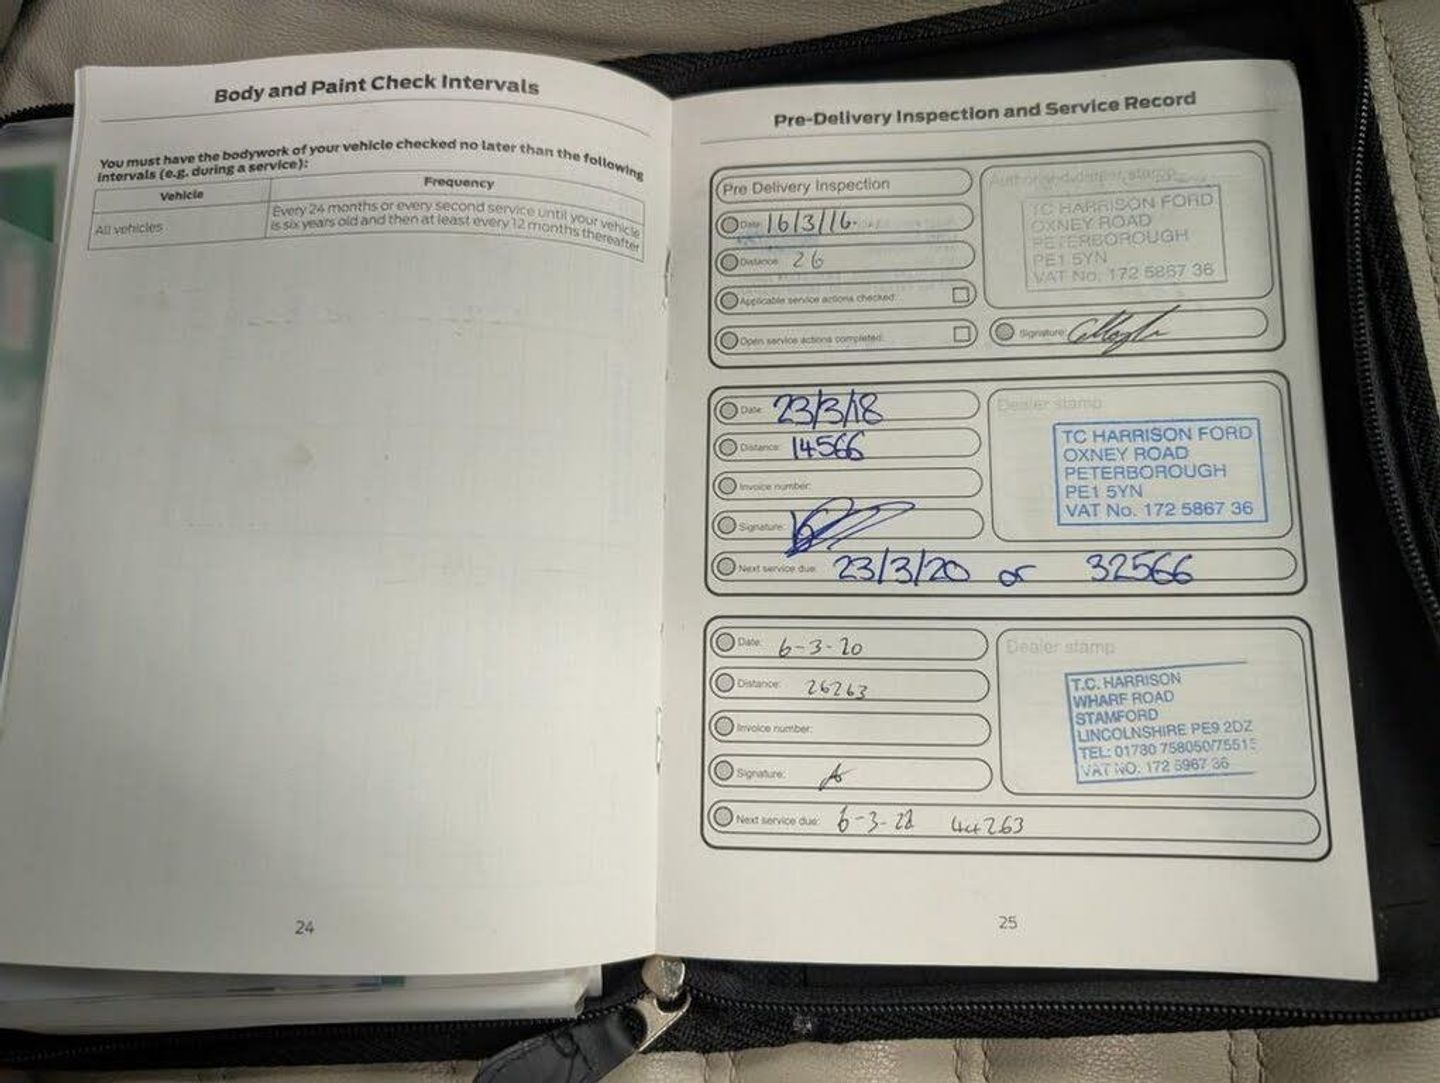 Body and Paint Check Intervals
You must have the bodywork of your vehicle checked no later than the following
intervals (e.g. during a service):
Vehicle
Frequency
All vehicles
Every 24 months or every second service until your vehicle
is six years old and then at least every 12 months thereafter
24
Pre-Delivery Inspection and Service Record
Pre Delivery Inspection
Date: 16/3/16
Distance: 26
Applicable service actions checked:
Open service actions completed:
Authorised dealer stamp
TC HARRISON FORD
OXNEY ROAD
PETERBOROUGH
PE1 5YN
VAT No. 172 5867 36
Signature:
Date: 23/3/18
Distance: 14566
Invoice number:
Signature:
Next service due: 23/3/20 or 32566
Dealer stamp
TC HARRISON FORD
OXNEY ROAD
PETERBOROUGH
PE1 5YN
VAT No. 172 5867 36
Date: 6-3-20
Distance: 26263
Invoice number:
Signature:
Next service due: 6-3-22 44263
Dealer stamp
T.C. HARRISON
WHARF ROAD
STAMFORD
LINCOLNSHIRE PE9 2DZ
TEL: 01780 758050/75515
VAT NO. 172 5967 36
25